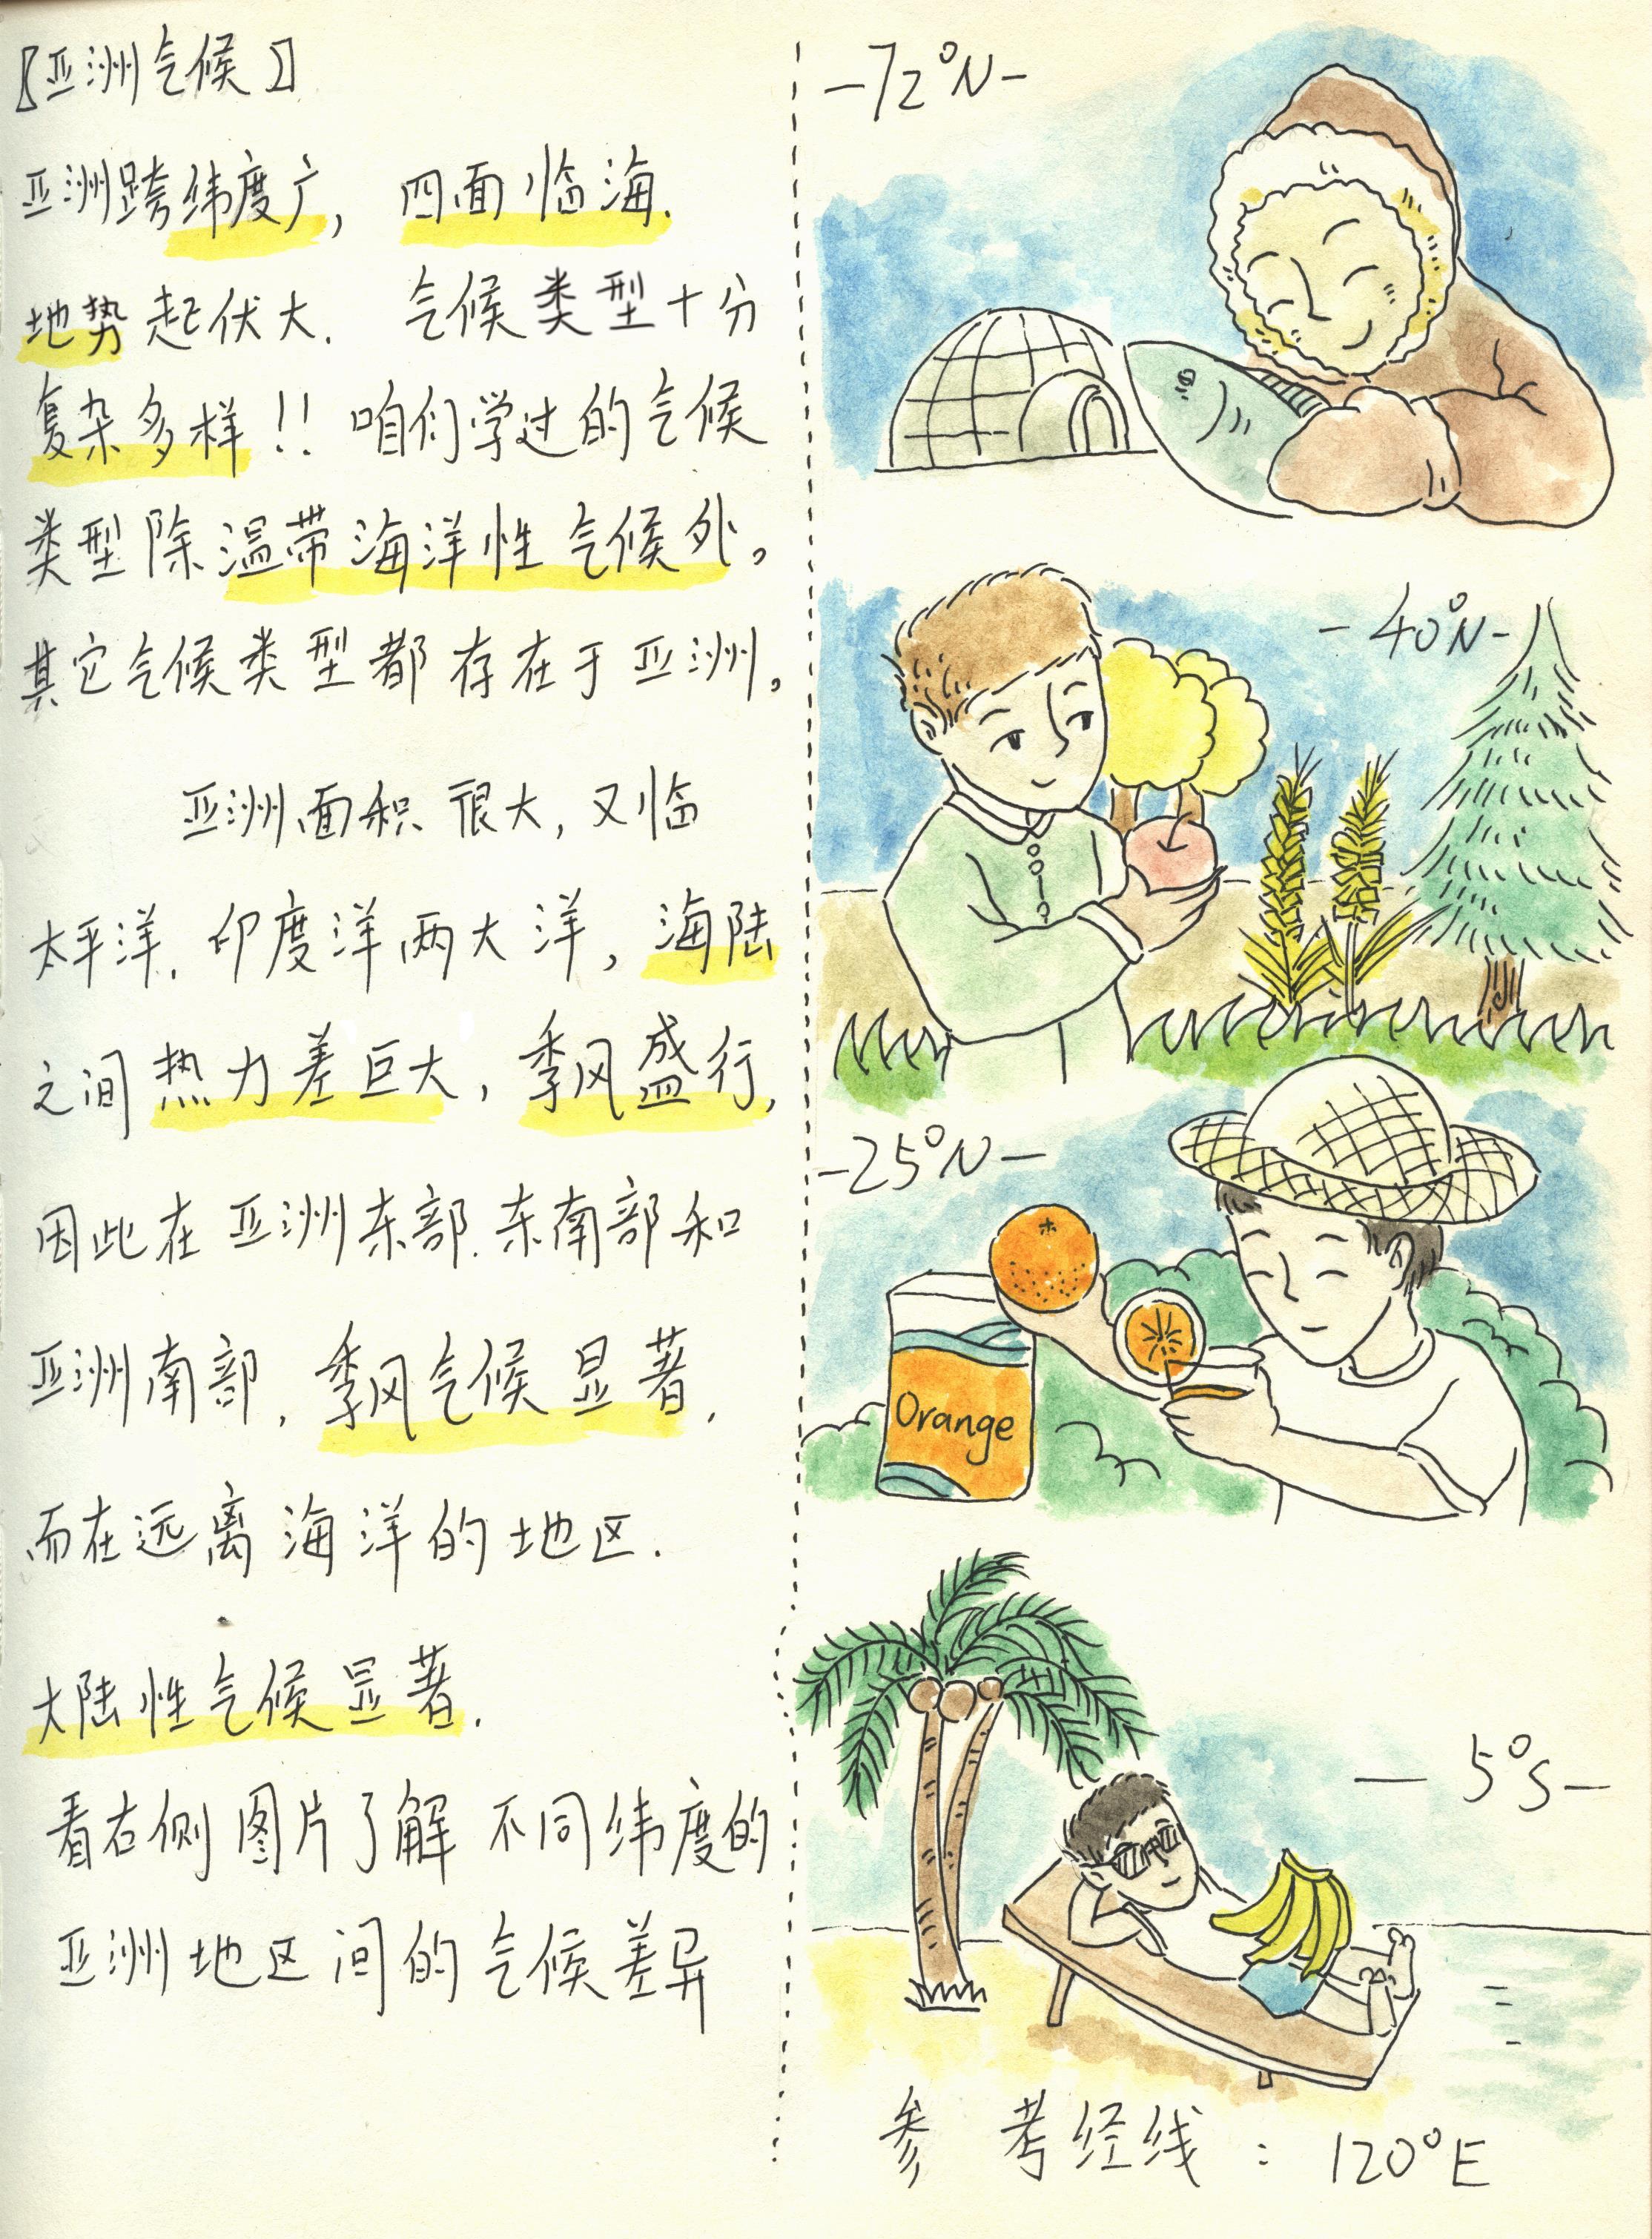 【亚洲气候】
亚洲跨纬度广, 四面临海.
地势起伏大. 气候类型十分
复杂多样!! 咱们学过的气候
类型除温带海洋性气候外,
其它气候类型都存在于亚洲,
亚洲面积很大, 又临
太平洋. 印度洋两大洋, 海陆
之间热力差巨大, 季风盛行,
因此在亚洲东部. 东南部和
亚洲南部, 季风气候显著,
而在远离海洋的地区.
大陆性气候显著.
看右侧图片了解不同纬度的
亚洲地区间的气候差异
-72°N-
-40°N-
-25°N-
Orange
-5°S-
参考经线: 120°E